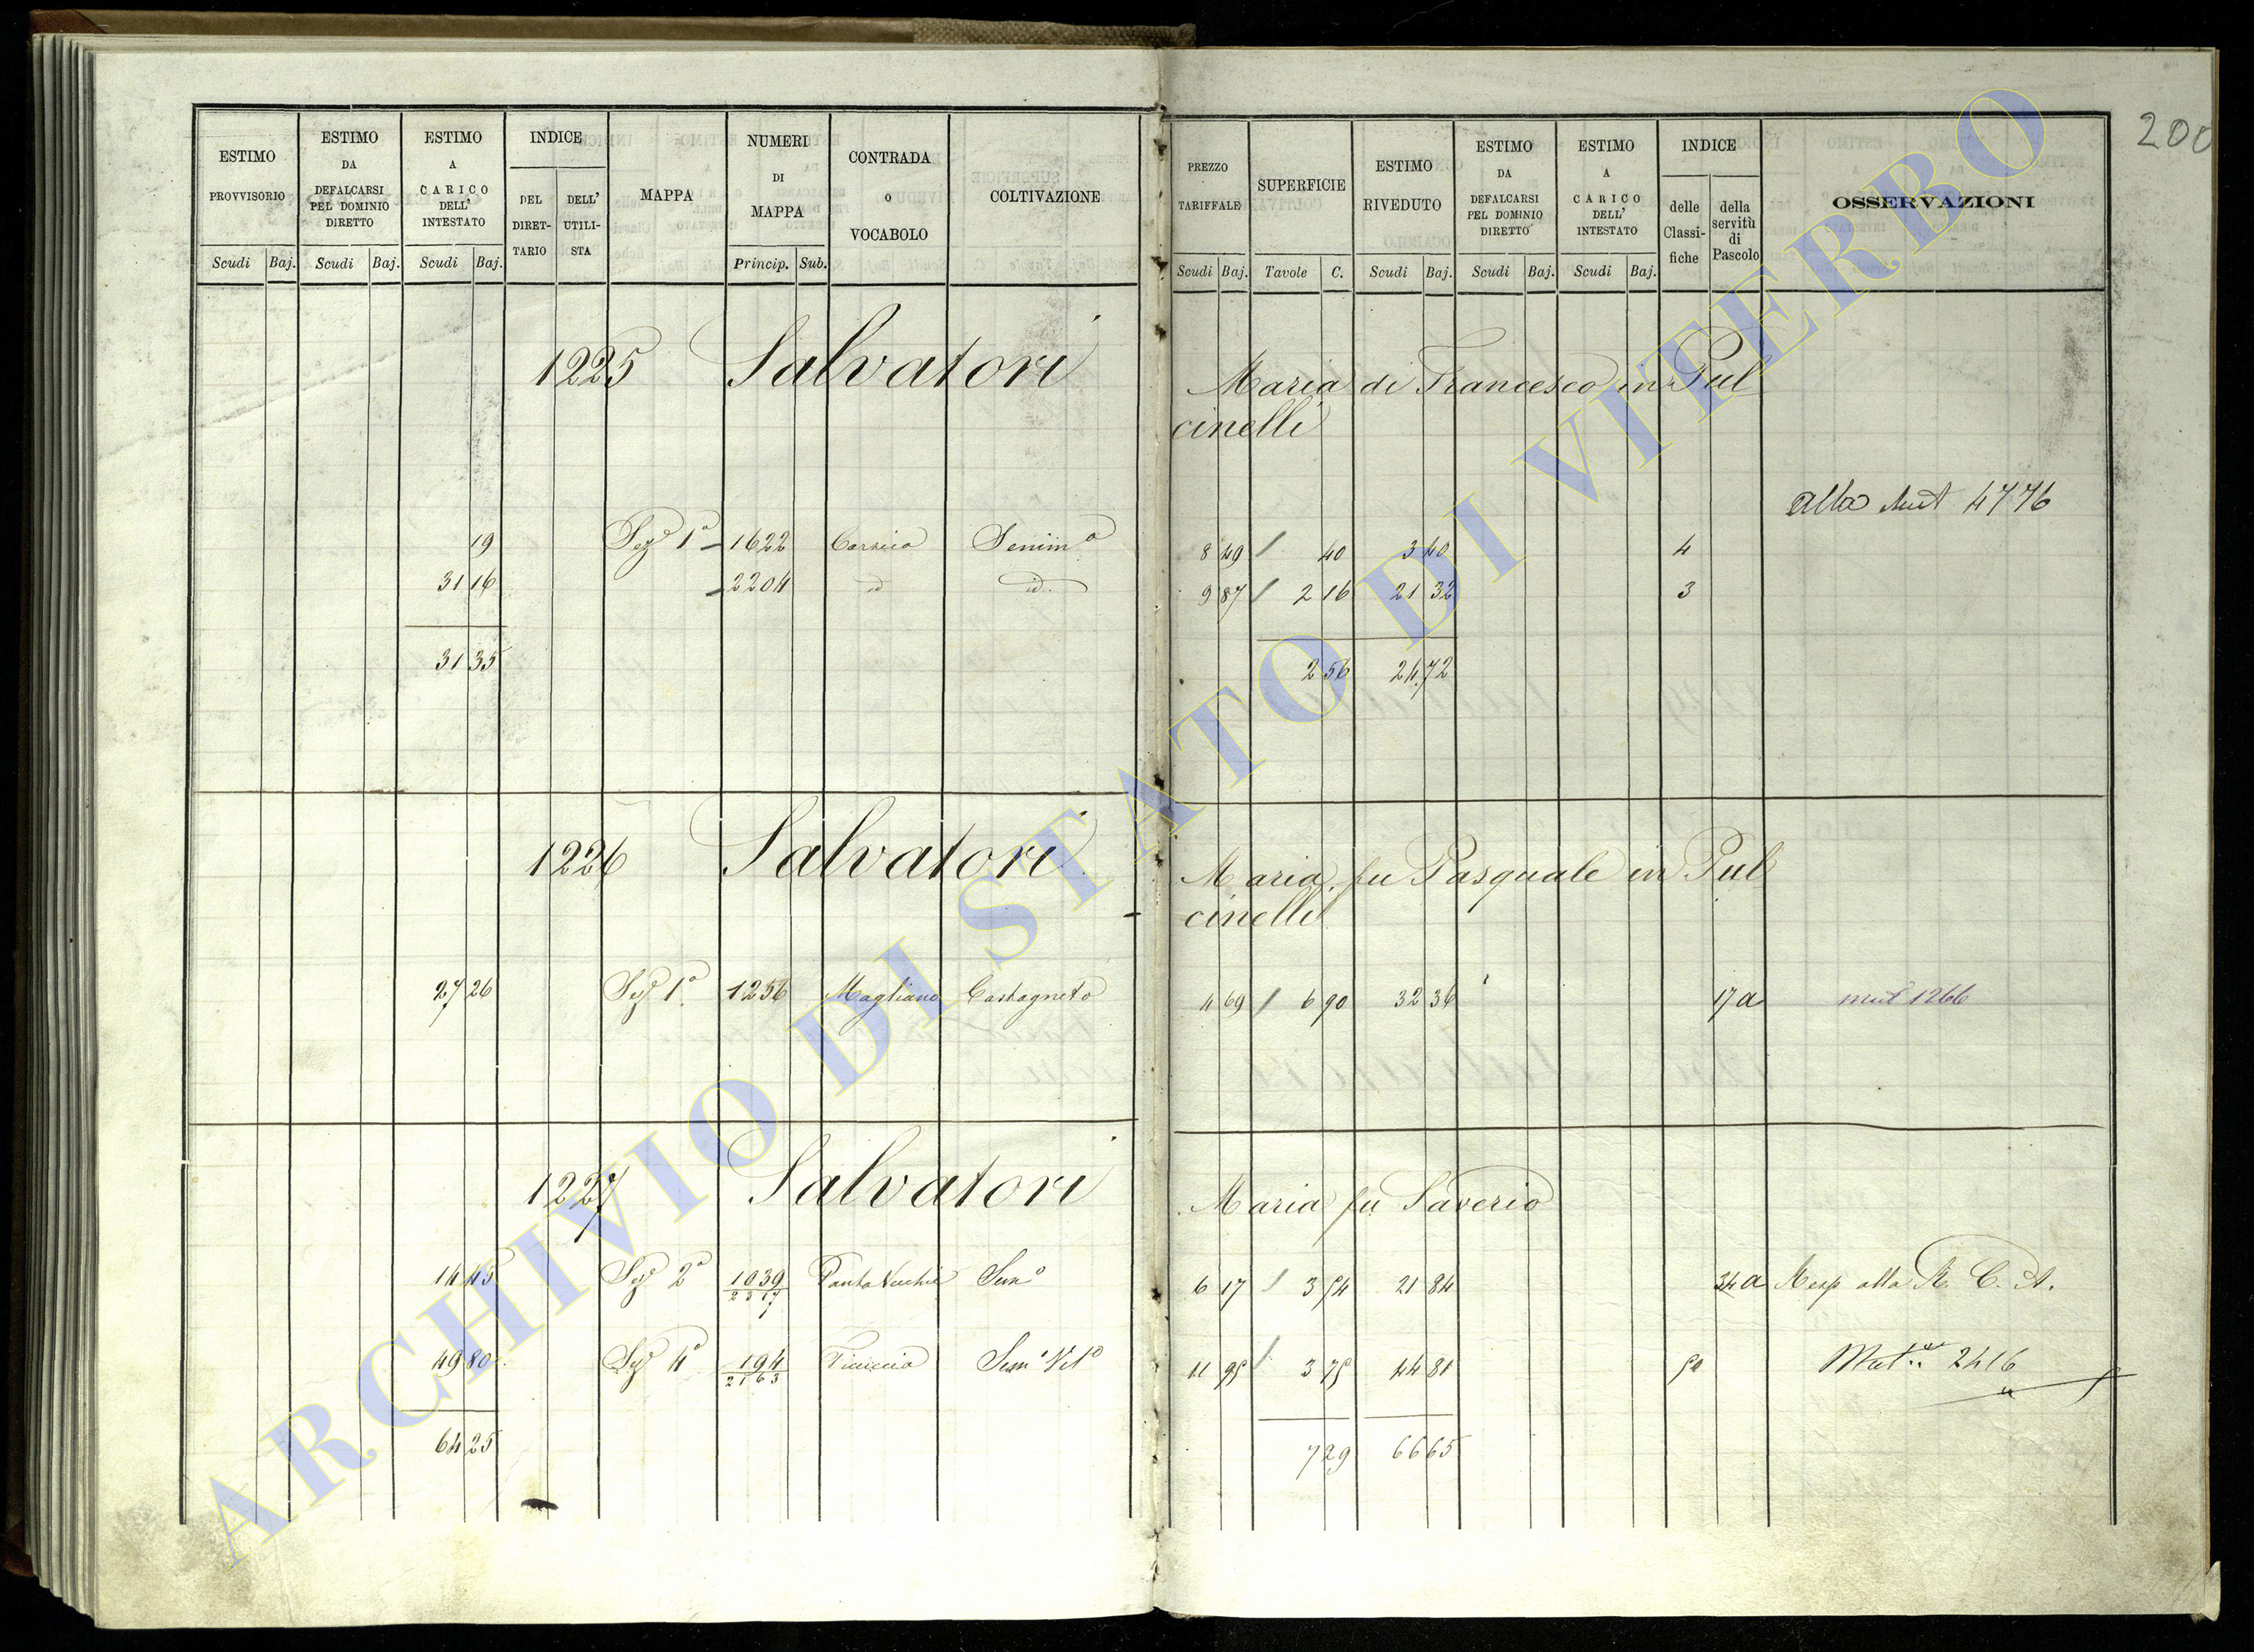 200
ESTIMO PROVVISORIO
ESTIMO DA DEFALCARSI PEL DOMINIO DIRETTO
ESTIMO A CARICO DELL' INTESTATO
INDICE
DEL DIRET-TARIO
DELL' UTILI-STA
MAPPA
NUMERI DI MAPPA
CONTRADA o VOCABOLO
COLTIVAZIONE
PREZZO TARIFFALE
SUPERFICIE
ESTIMO RIVEDUTO
ESTIMO DA DEFALCARSI PEL DOMINIO DIRETTO
ESTIMO A CARICO DELL' INTESTATO
INDICE
delle Classi-fiche
della servitù di Pascolo
OSSERVAZIONI
Scudi Baj. Scudi Baj. Scudi Baj. Princip. Sub. Scudi Baj. Tavole C. Scudi Baj. Scudi Baj. Scudi Baj.
1225 Salvatori Maria di Francesco in Pul
cinelli
alla Mut 4776
19 Sezº 1ª 1622 Semimº 8 49 40 3 40 4
31 16 2204 id id. 9 87 2 16 21 32 3
31 35 2 56 24 72
1226 Salvatori Maria fu Pasquale in Pul
cinelli
27 26 Sezº 1ª 1256 Magliano Castagneto 4 69 6 90 32 36 17 a mut 1266
1227 Salvatori Maria fu Saverio
14 45 Sezº 2ª 1039 Semº 6 17 3 54 21 84 34 a Resp alla R. C. A.
2317
49 80 Sezº 4ª 194 Semº Vitº 11 95 3 75 44 81 50 2416
2163
64 25 7 29 66 65
ARCHIVIO DI STATO DI VITERBO